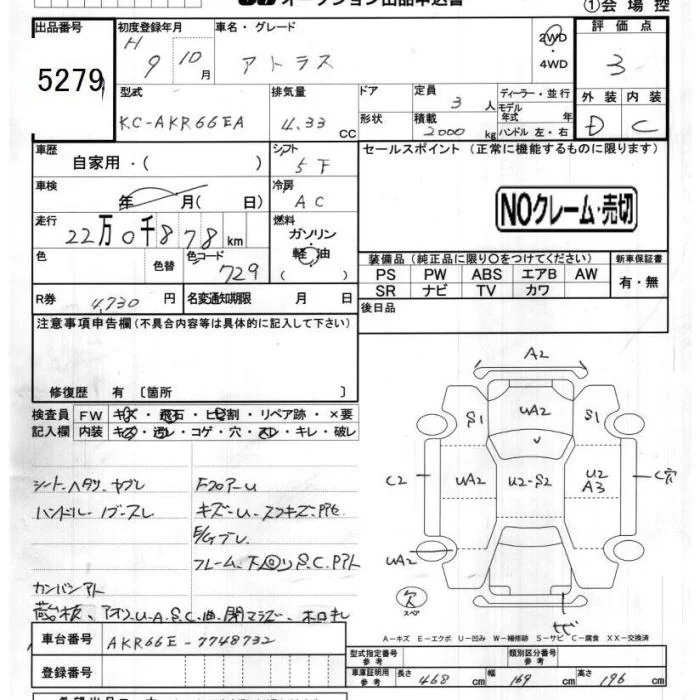 オークション出品申込書
①会場控
出品番号
5279
初度登録年月
H 9 10月
車名・グレード
アトラス
2WD
4WD
評価点
3
外装 内装
D C
型式
KC-AKR66EA
排気量
4.33 CC
ドア
形状
定員 3 人
積載 2000 kg
ディーラー・並行
モデル年式 年
ハンドル 左・右
車歴
自家用・( )
シフト
5F
セールスポイント(正常に機能するものに限ります)
NOクレーム・売切
車検
年 月( 日)
冷房
AC
走行
22万0千878km
燃料
ガソリン
軽油
( )
色
色替
色コード
729
装備品(純正品に限り○をつけてください)
PS PW ABS エアB AW
SR ナビ TV カワ
新車保証書
有・無
R券 4,730 円
名変通知期限 月 日
後日品
注意事項申告欄(不具合内容等は具体的に記入して下さい)
修復歴 有 〔箇所 〕
検査員記入欄
FW キズ・飛石・ヒビ割・リペア跡・×要
内装 キズ・汚レ・コゲ・穴・スレ・キレ・破レ
シートヘタリ、ヤブレ
ハンドル
フロアーU
キズ・U
フレーム、下回りS.C.Pアト
カンバンアト
A2
S1 UA2 S1
C2 UA2 U2-S2 U2 A3 C穴
UA2
欠
スペア
サビ
A-キズ E-エクボ U-凹み W-補修跡 S-サビ C-腐食 XX-交換済
車台番号 AKR66E-7748732
登録番号
型式指定番号 参考
類別区分番号 参考
車庫証明用 参考 長さ 468 cm 幅 169 cm 高さ 196 cm